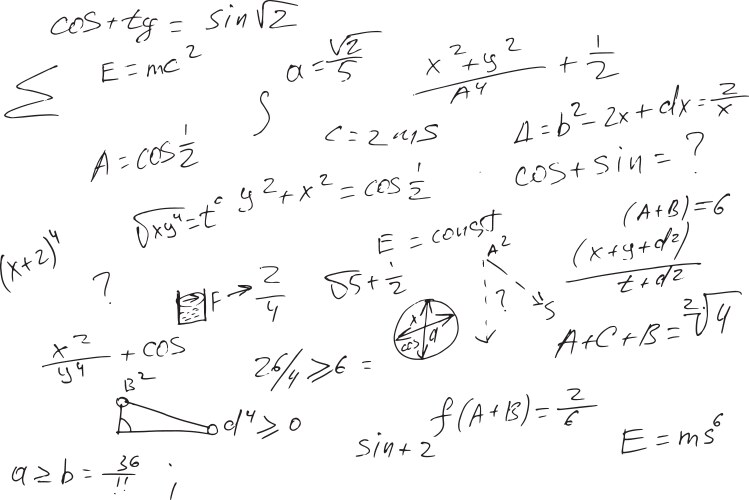 cos + tg = sin √2
Σ
E = mc²
a = √2/5
(x² + y²)/A⁴ + 1/2
∫
A = cos 1/2
c = 2 ms
Δ = b² - 2x + dx = 2/x
cos + sin = ?
√xy⁴ = t⁶
y² + x² = cos 1/2
(A+B) = 6
(x+2)⁴
E = const
A²
(x+y+d²)/(t+d²)
?
F → 2/4
√5 + 1/2
?
s
x
cos
a
A + C + B = ²√4
x²/y⁴ + cos
26/4 ≥ 6 =
B²
d⁴ ≥ 0
f(A+B) = 2/6
sin + 2
E = ms⁶
a ≥ b = 36/!!
i